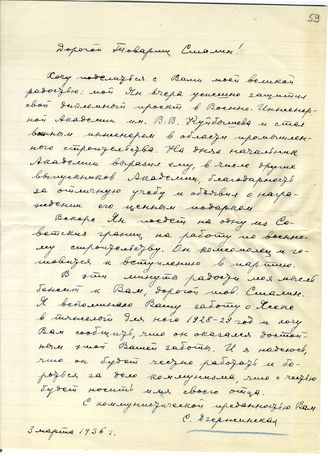 59
Дорогой Товарищ Сталин!
Хочу поделиться с Вами моей великой
радостью: мой Ян вчера успешно защитил
свой дипломный проект в Военно-Инженер-
ной Академии им. В.В. Куйбышева и стал
военным инженером в области промышлен-
ного строительства. На днях начальник
Академии выразил ему, в числе других
выпускников Академии, благодарность
за отличную учебу и объявил о награ-
ждении его ценным подарком.
Вскоре Ян поедет на одну из Со-
ветских границ на работу по военно-
му строительству. Он комсомолец и го-
товится к вступлению в партию.
В эти минуты радости моя мысль
бежит к Вам, дорогой тов. Сталин.
Я вспоминаю Вашу заботу о Ясене
в тяжелый для него 1928-29 год и хочу
Вам сообщить, что он оказался достой-
ным этой Вашей заботы. И я надеюсь,
что он будет честно работать и бо-
роться за дело коммунизма, что с честью
будет носить имя своего отца.
С коммунистической преданностью Вам
С. Дзержинская
3 марта 1936 г.